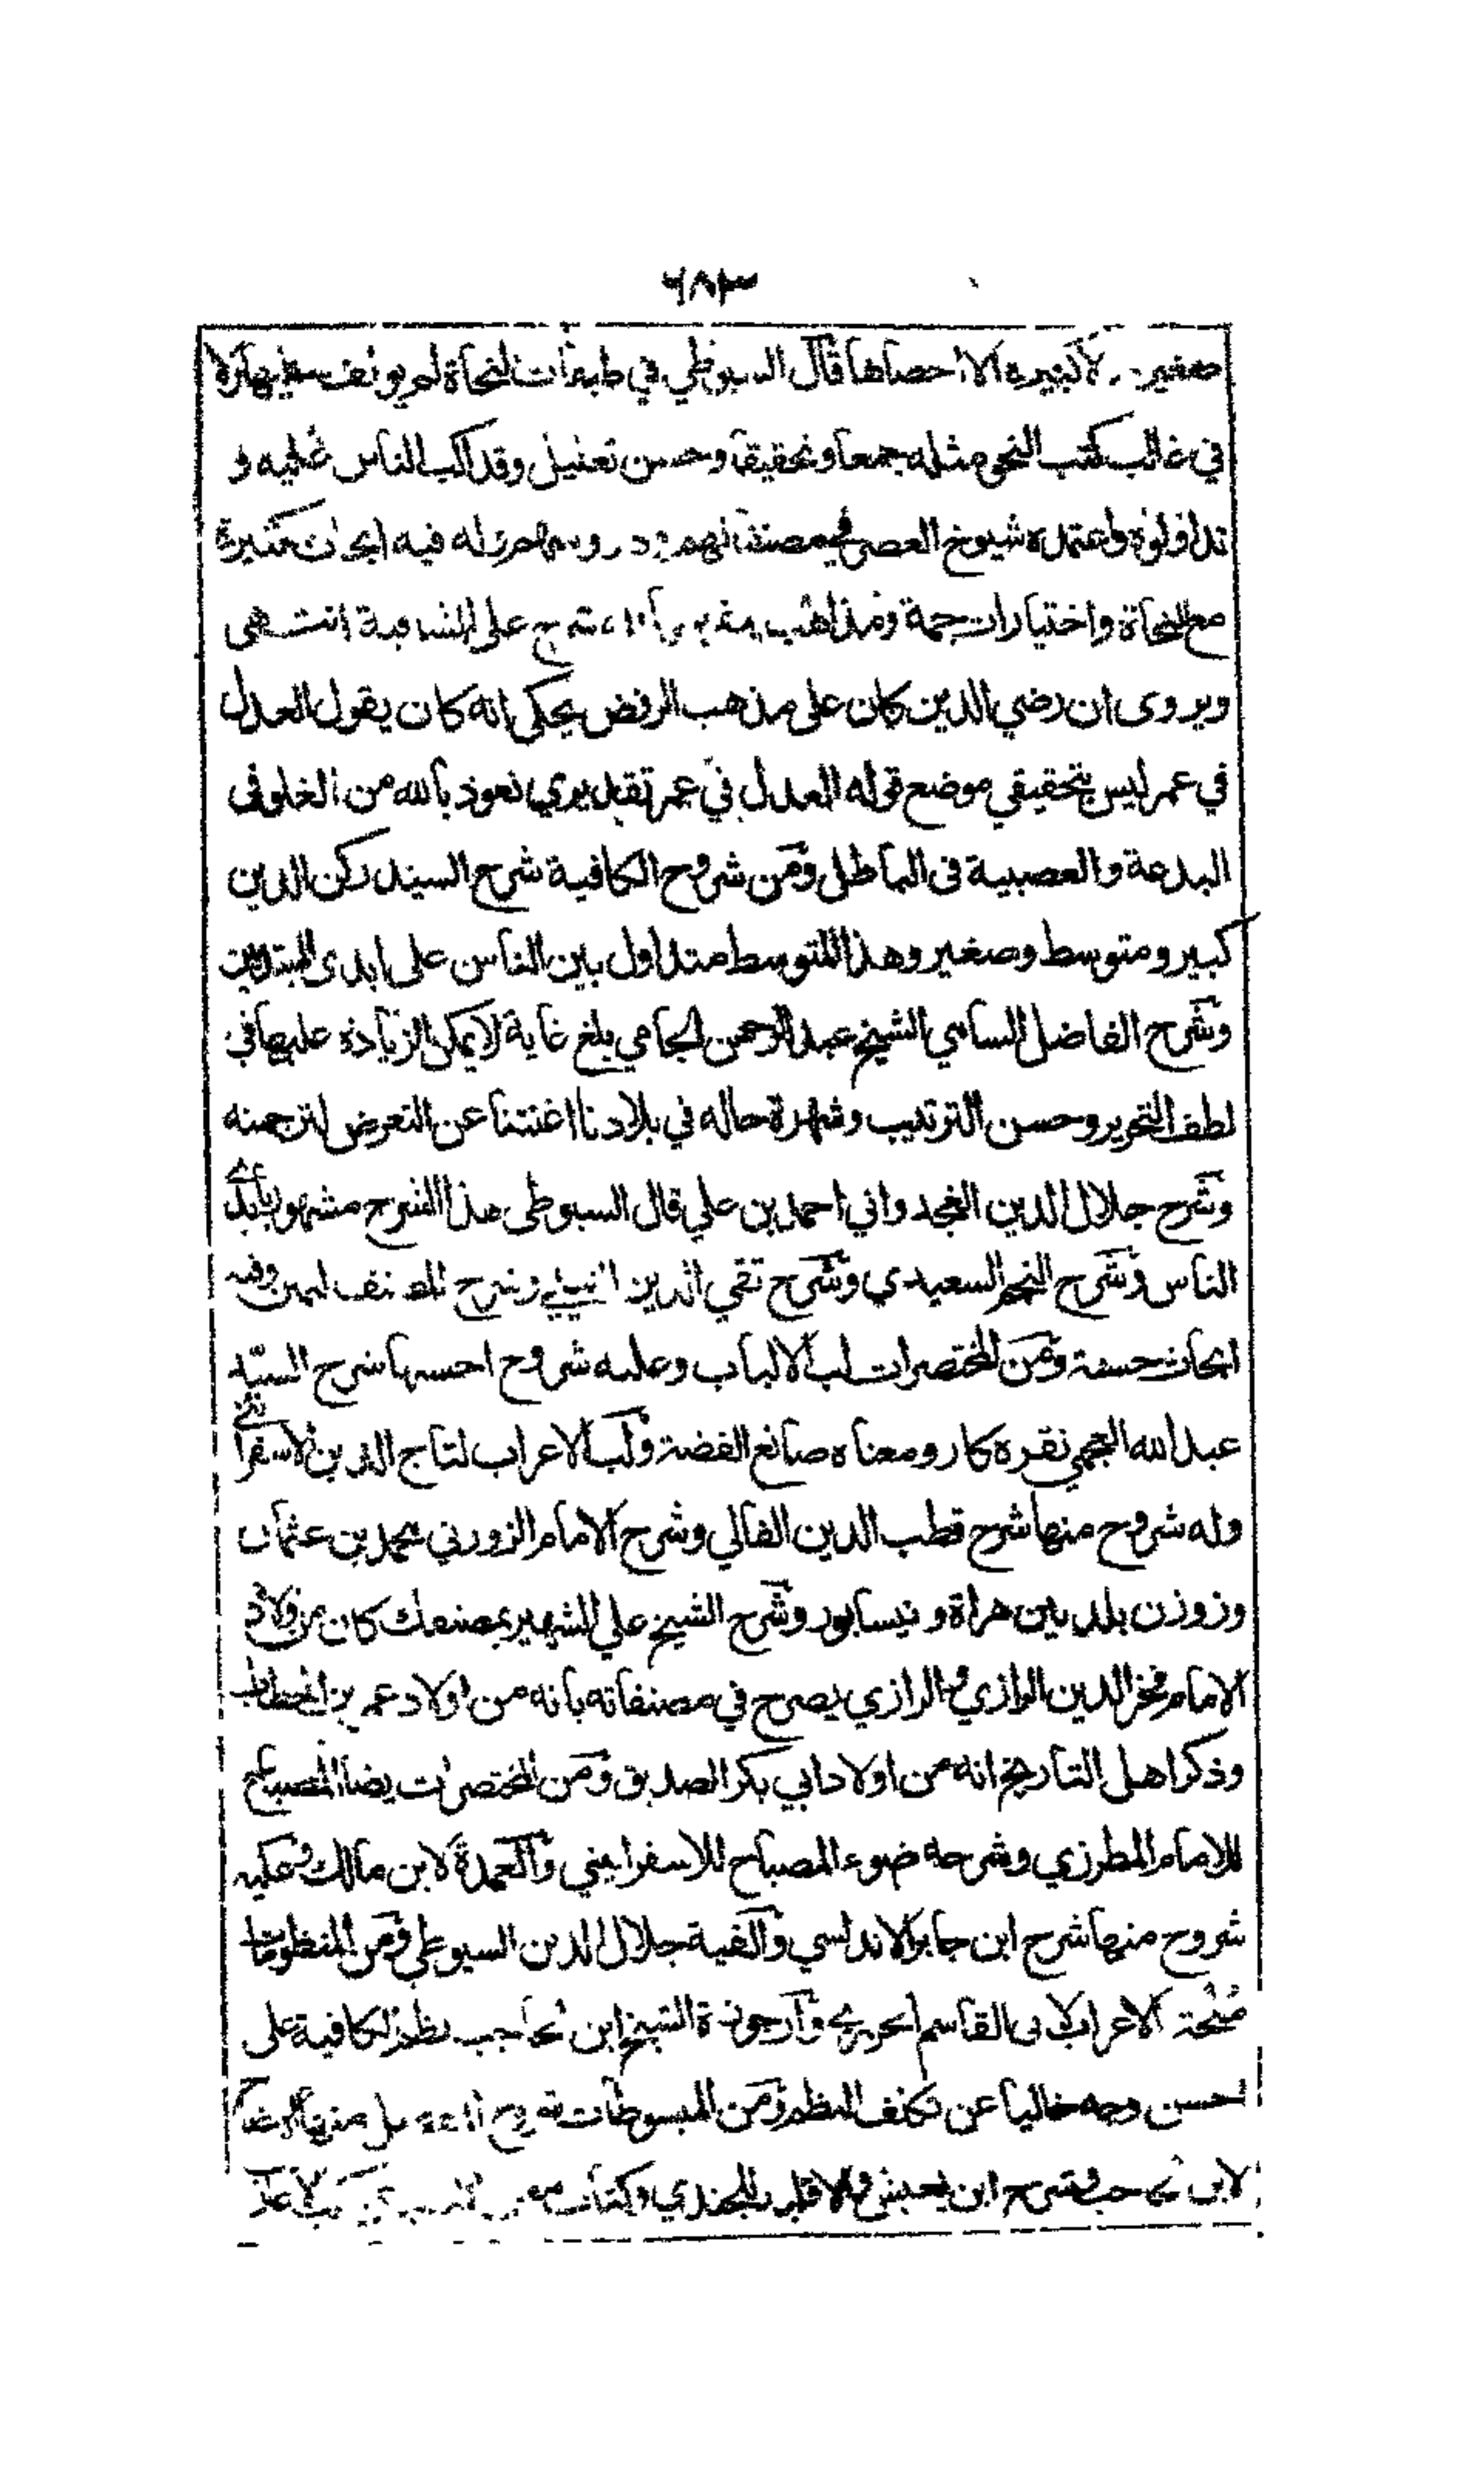 ٦٨٣
صغيرة ولا كبيرة الا احصاها قال السيوطي في طبقات النحاة لم يؤلف عليها لا
في غالب كتب النحو مثله جمعا وتحقيقا وحسن تعليل وقد اكب الناس عليه و
تداولوه واعتمده شيوخ العصر في مصنفاتهم ودروسهم وله فيه ابحاث كثيرة
مع النحاة واختيارات جمة ومذاهب شرح على الشافية انتهى
ويروى ان رضي الدين كان على مذهب الرفض يحكى انه كان يقول العدل
في عمر ليس بتحقيقي موضع قوله العدل في عمر تقديري نعوذ بالله من الغلو في
البدعة والعصبية في الباطل ومن شروح الكافية شرح السيد ركن الدين
كبير ومتوسط وصغير وهذا المتوسط متداول بين الناس على ايدى المبتدئين
وشرح الفاضل السامي الشيخ عبد الرحمن الجامي بلغ غاية لا يمكن الزيادة عليها في
لطف التحرير وحسن الترتيب وشهرة حاله في بلادنا اغنتنا عن التعرض لترجمته
وشرح جلال الدين الغجدواني احمد بن علي قال السيوطي هذا الشرح مشهور بايدي
الناس وشرح النجم السعيدي وشرح تقي الدين النيلي وشرح للمصنف ايضا وفيه
ابحاث حسنة ومن المختصرات لب الالباب وعليه شروح احسنها شرح السيد
عبد الله العجمي نقره كار ومعناه صانع الفضة ولب الاعراب لتاج الدين الاسفرائني
وله شروح منها شرح قطب الدين الفالي وشرح الامام الزوزني محمد بن عثمان
وزوزن بلد بين هراة ونيسابور وشرح الشيخ علي الشهير بمصنفك كان من اولاد
الامام فخر الدين الرازي والرازي يصرح في مصنفاته بانه من اولاد عمر بن الخطاب
وذكر اهل التاريخ انه من اولاد ابي بكر الصديق ومن المختصرات ايضا المصباح
للامام المطرزي وشرحه ضوء المصباح للاسفرايني والعمدة لابن مالك وعليه
شروح منها شرح ابن جابر الاندلسي والفية جلال الدين السيوطي ومن المنظومات
ملحة الاعراب لابي القاسم الحريري وارجوزة الشيخ ابن الحاجب نظم الكافية على
احسن وجه خاليا عن تكلف النظم ومن المبسوطات شروح المفصل منها الايضاح
لابن الحاجب وشرح ابن يعيش والاقليد للجندي وكتاب